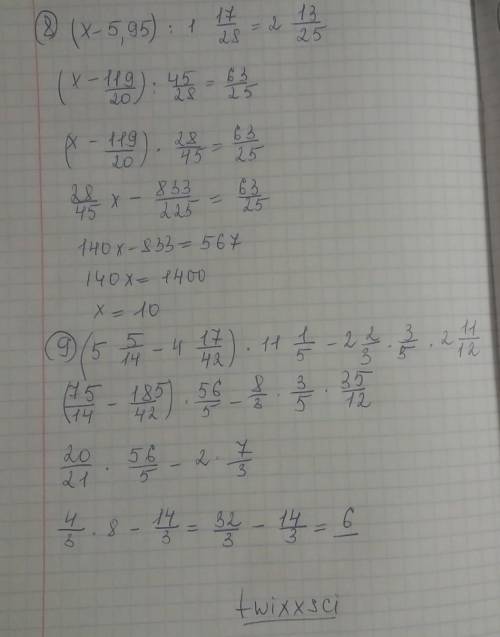 ⑧ (x-5,95) : 1 17/28 = 2 13/25
(x - 119/20) : 45/28 = 63/25
(x - 119/20) · 28/45 = 63/25
28/45 x - 833/225 = 63/25
140x - 833 = 567
140x = 1400
x = 10
⑨ (5 5/14 - 4 17/42) · 11 1/5 - 2 2/3 · 3/5 · 2 11/12
(75/14 - 185/42) · 56/5 - 8/3 · 3/5 · 35/12
20/21 · 56/5 - 2 · 7/3
4/3 · 8 - 14/3 = 32/3 - 14/3 = 6
twixxsci